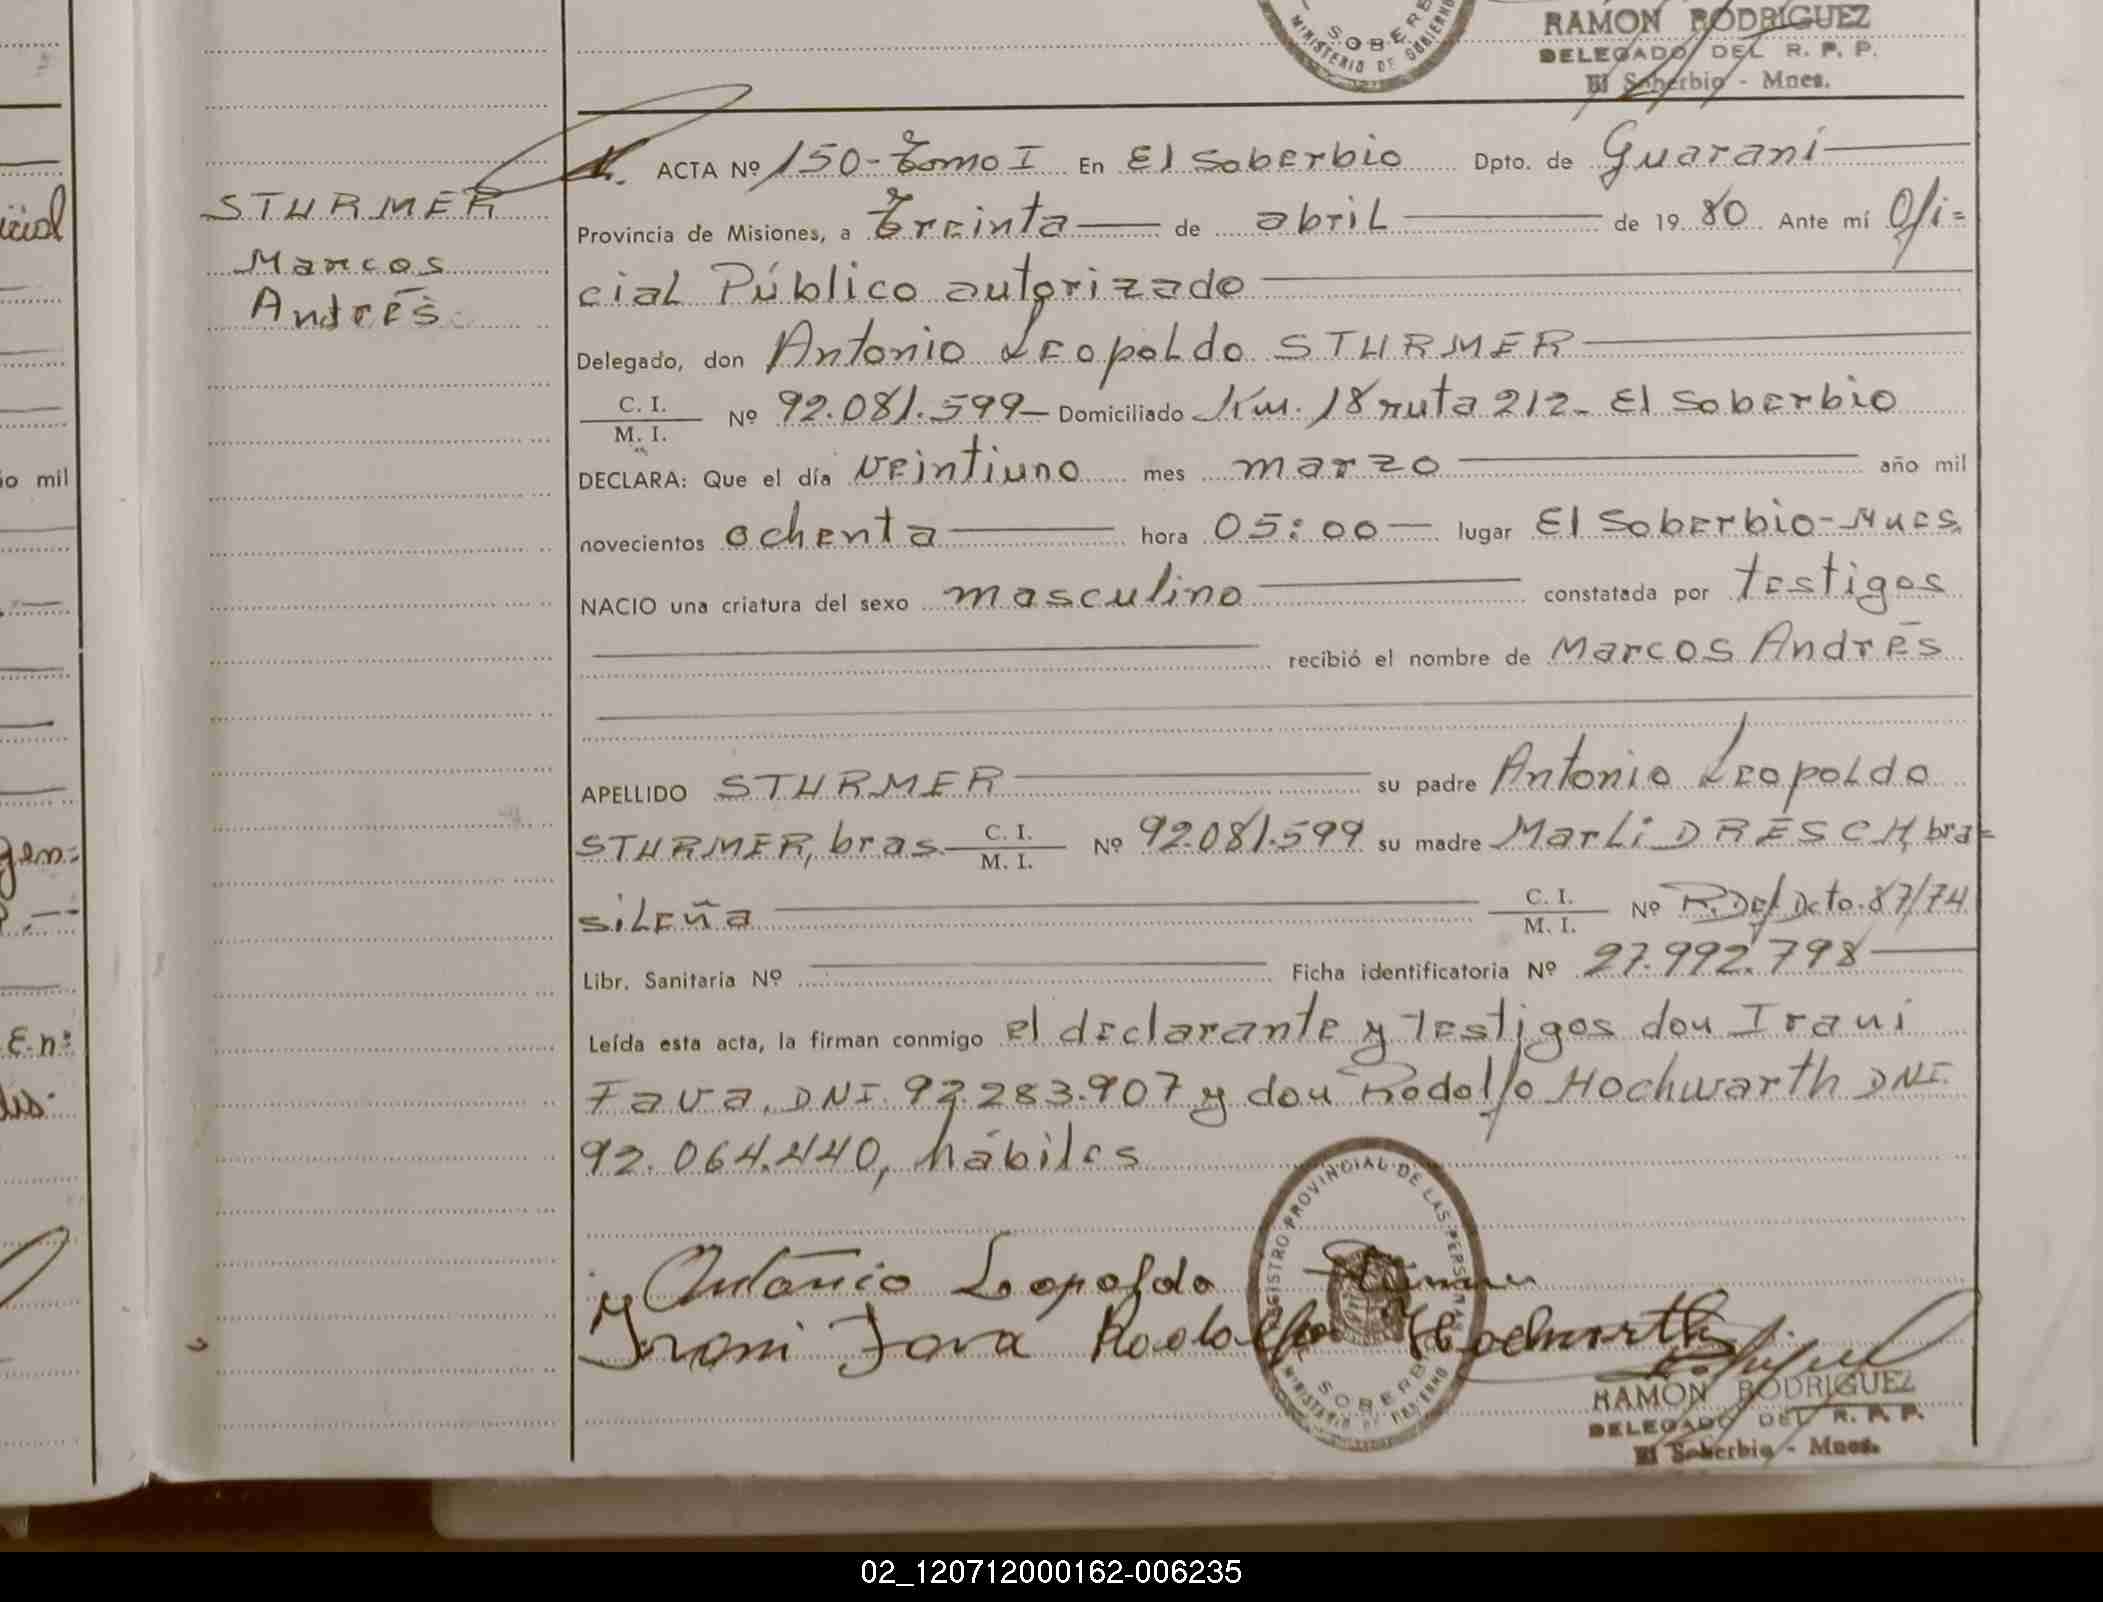 SOBERB
MINISTERIO DE GOBIERNO
RAMON RODRIGUEZ
DELEGADO DEL R. P. P.
El Soberbio - Mnes.
ACTA Nº 150-Tomo I En El Soberbio Dpto. de Guaraní
STURMER
Marcos
Andrés
Provincia de Misiones, a Treinta de abril de 19 80 Ante mí Ofi=
cial Público autorizado
Delegado, don Antonio Leopoldo STURMER
C. I.
M. I.
Nº 92.081.599- Domiciliado Km. 18 ruta 212- El Soberbio
DECLARA: Que el día veintiuno mes marzo año mil
novecientos ochenta hora 05:00 lugar El Soberbio-Mnes.
NACIO una criatura del sexo masculino constatada por testigos
recibió el nombre de Marcos Andrés
APELLIDO STURMER su padre Antonio Leopoldo
STURMER, bras. C. I. M. I. Nº 92.081.599 su madre Marli DRESCH, bra=
sileña C. I. M. I. Nº R. Def Dcto. 87/74
Libr. Sanitaria Nº Ficha identificatoria Nº 27.992.798
Leída esta acta, la firman conmigo el declarante y testigos don Irani
Fava, DNI. 92.283.907 y don Rodolfo Hochwarth DNI.
92.064.440, hábiles
REGISTRO PROVINCIAL DE LAS PERSONAS
Antonio Leopoldo Sturmer
Irani Fava Rodolfo Hochwarth
SOBERB
MINISTERIO DE GOBIERNO
RAMON RODRIGUEZ
DELEGADO DEL R. P. P.
El Soberbio - Mnes.
icial
io mil
gen=
En:
dis:
02_120712000162-006235